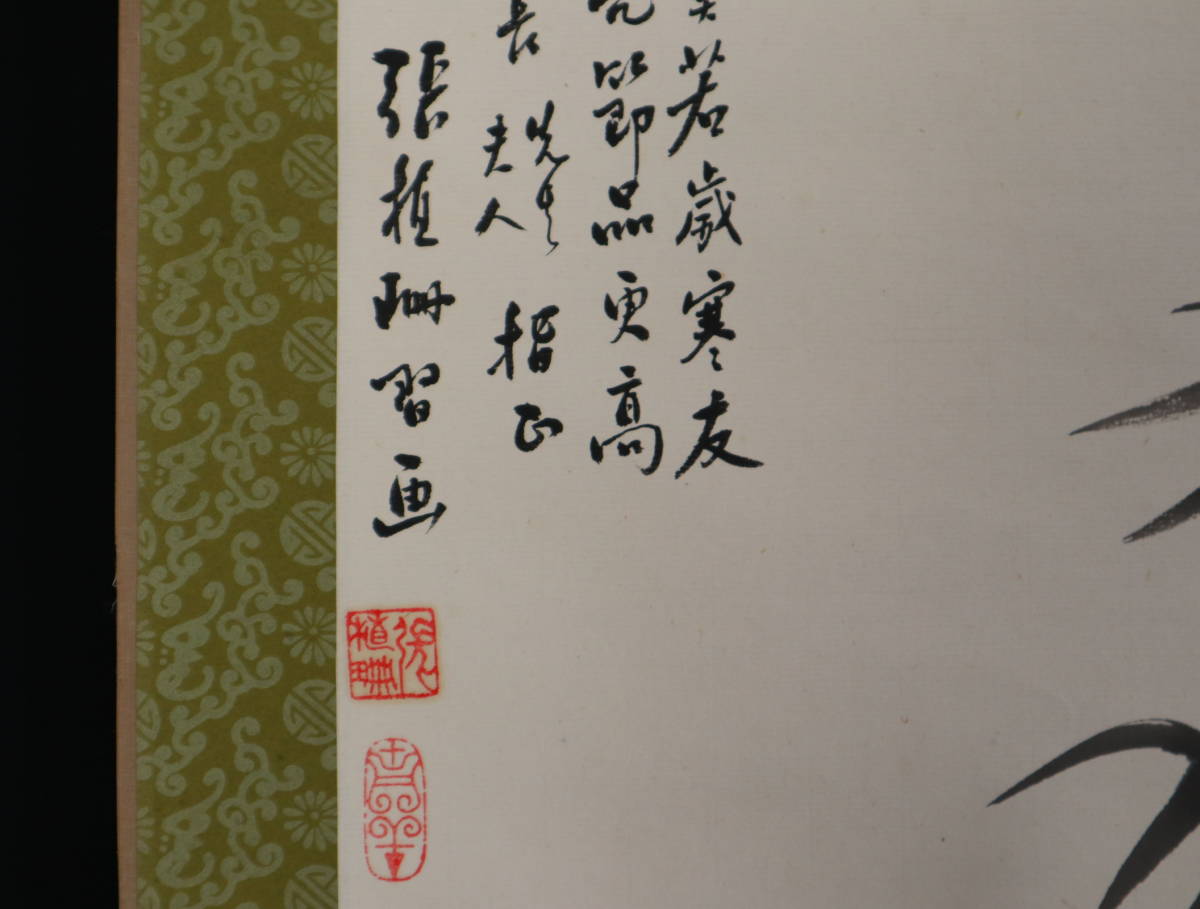 若歲寒友
節品更高
先生
長夫人
指正
張植珊習画
張植珊